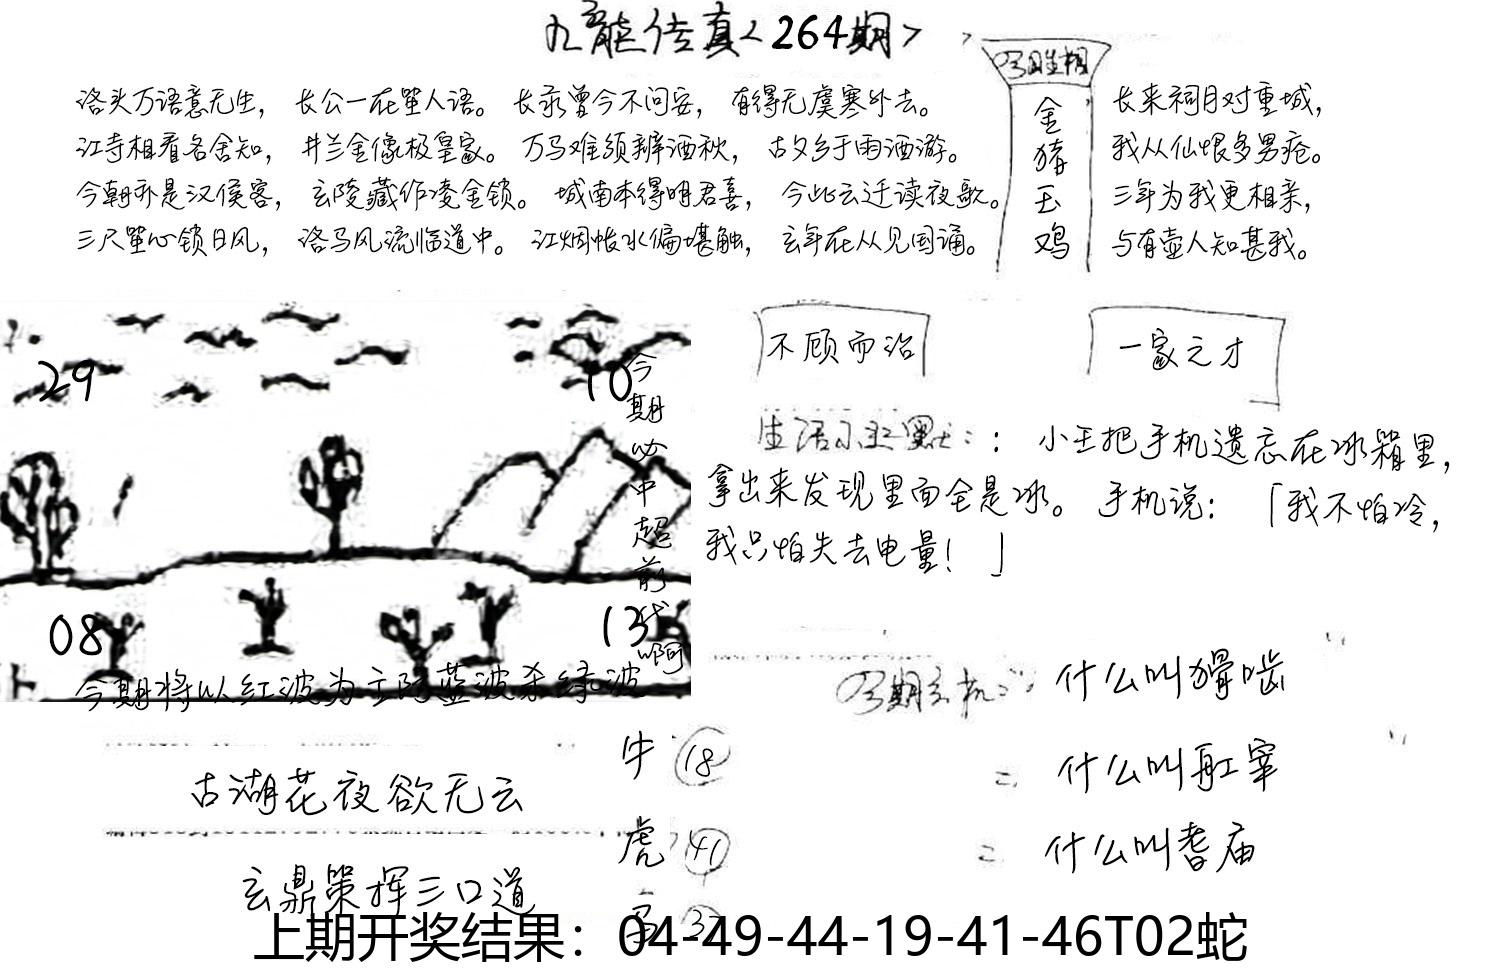 九龙传真<264期>
洛头万语意无生， 长公一在笙人语。 长录曾今不问安， 有得无虞寒外去。
江寺相看各舍知， 井兰金像极皇家。 万马难须辨洒秋， 古夕乡于雨洒游。
今朝亦是汉侯客， 玄陵藏作凌金锁。 城南本得明君喜， 今此云迁读夜歌。
三尺笙心锁日风， 洛马风流临道中。 江烟怅水偏堪触， 玄年在从见国诵。
金
猪
玉
鸡
长来祠目对重城，
我从仙恨多男疮。
三年为我更相亲，
与有壶人知甚我。
29
10
08
13
今期必中超前
啊
今期将以红波为主防蓝波杀绿波
不顾而治
一家之才
生活小幽默：： 小王把手机遗忘在冰箱里，
拿出来发现里面全是冰。 手机说： 「我不怕冷，
我只怕失去电量！ 」
今期玄机： 什么叫猾啮
什么叫耴宰
什么叫耆庙
古湖花夜欲无云
玄鼎策挥三口道
牛 18
虎 41
上期开奖结果：04-49-44-19-41-46T02蛇